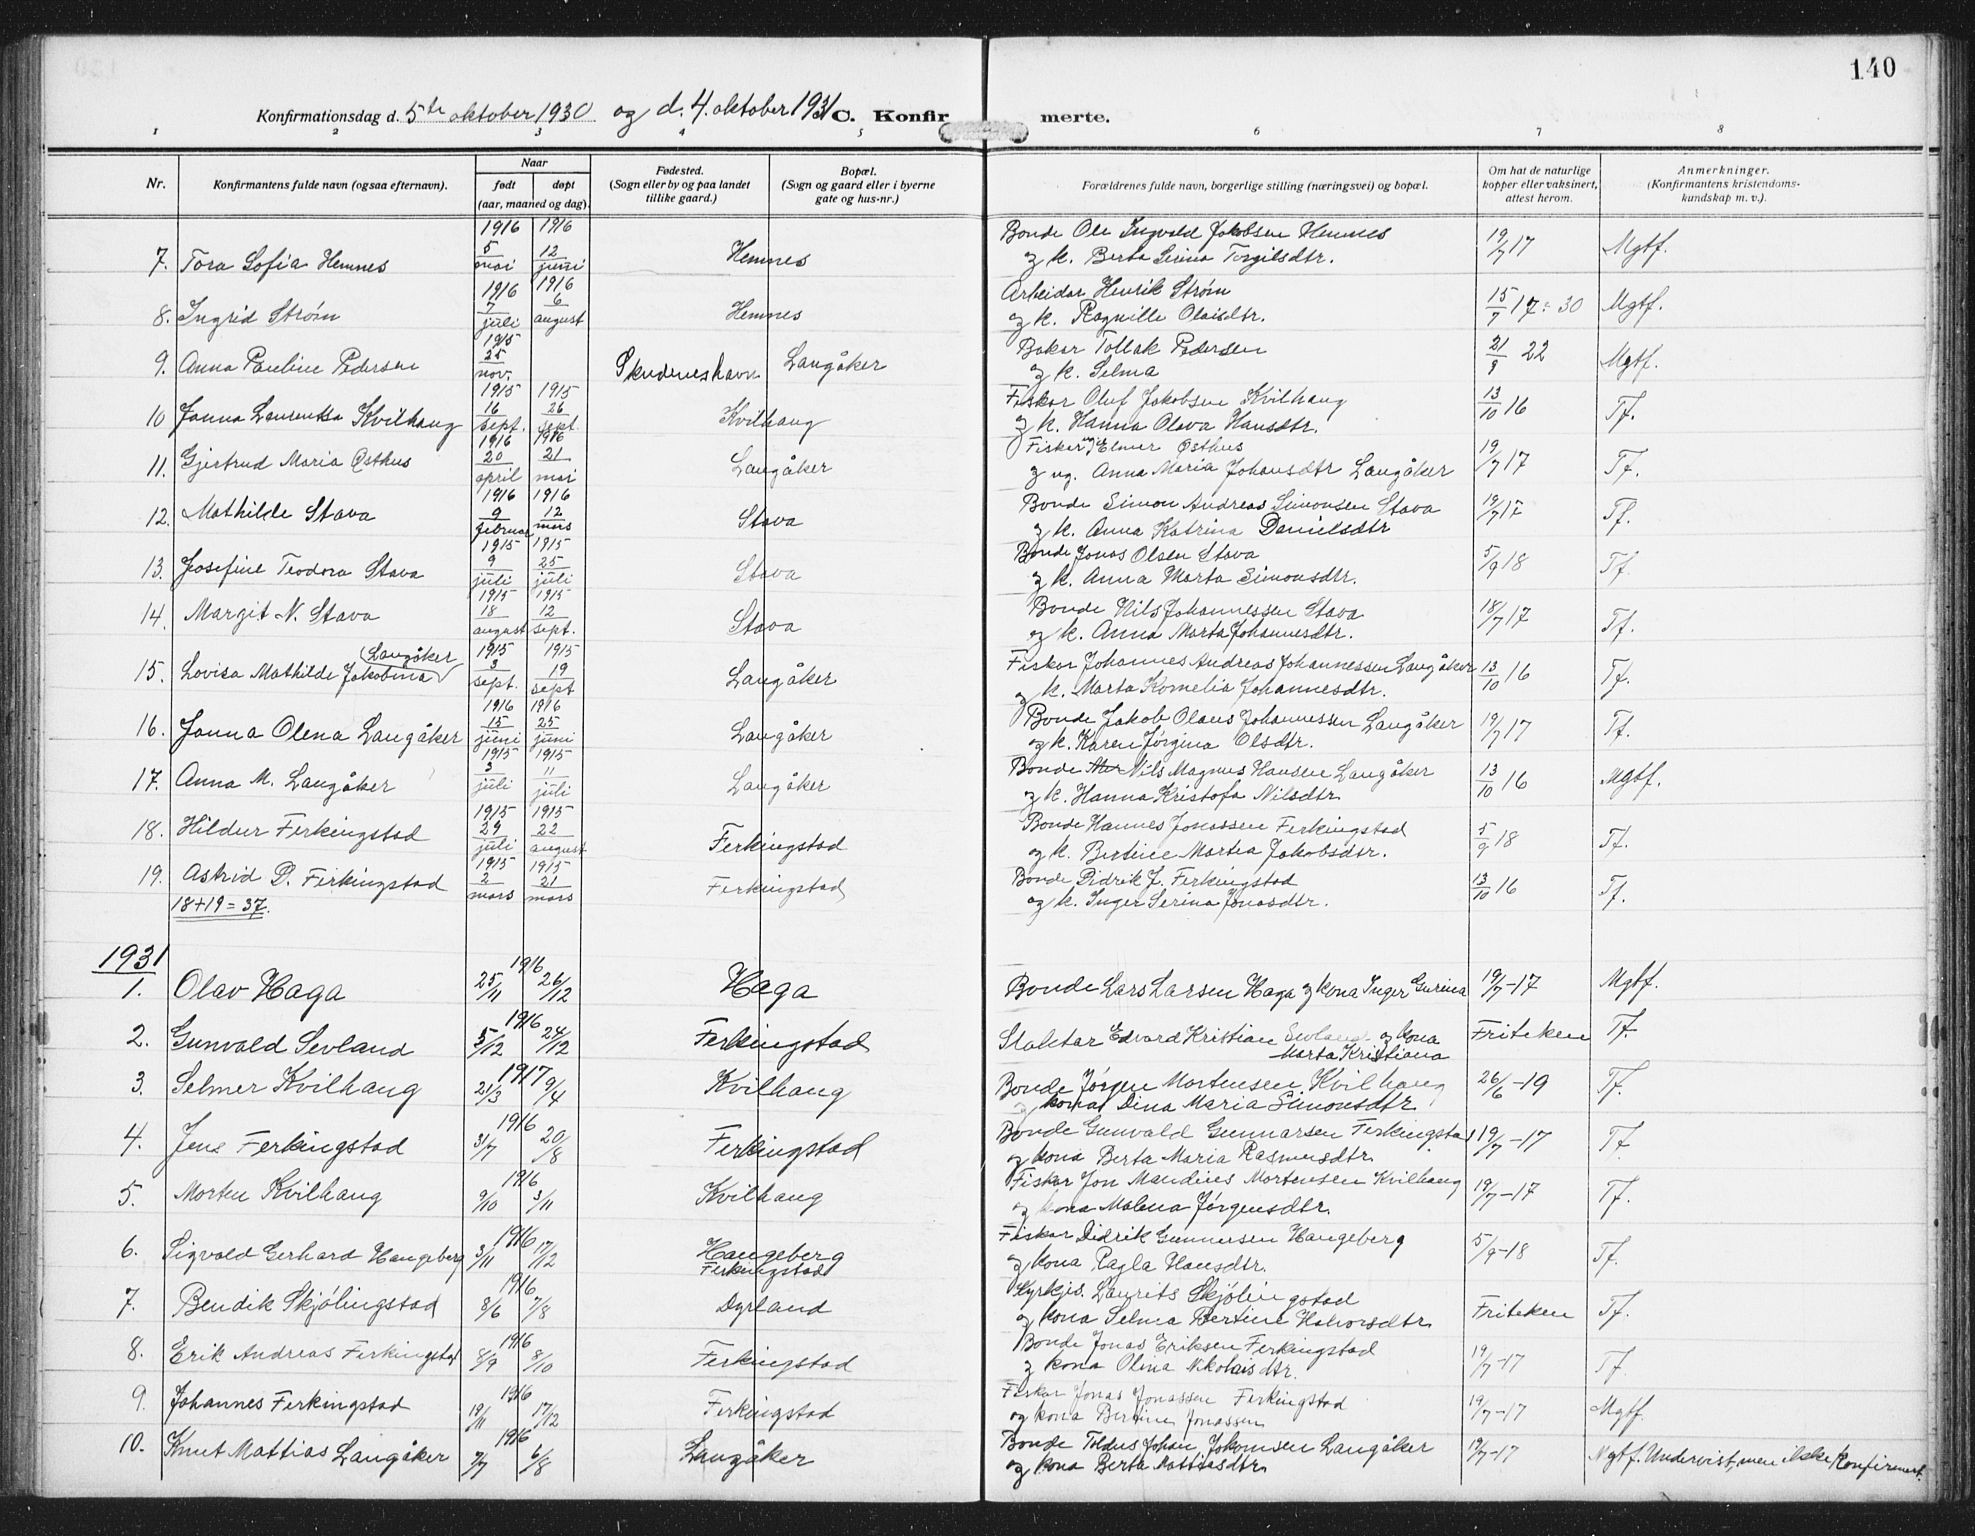 140
Konfirmationsdag d. 5te oktober 1930 og d. 4. oktober 1931 C. Konfirmerte.
1 2 3 4 5 6 7 8
Nr.
Konfirmantens fulde navn (ogsaa efternavn).
Naar
født
døpt
(aar, maaned og dag).
Fødested.
(Sogn eller by og paa landet
tillike gaard.)
Bopæl.
(Sogn og gaard eller i byerne
gate og hus-nr.)
Forældrenes fulde navn, borgerlige stilling (næringsvei) og bopæl.
Om hat de naturlige
kopper eller vaksinert,
attest herom.
Anmerkninger.
(Konfirmantens kristendoms-
kundskap m. v.).
1916 1916 Bonde Ole Ingvald Jakobsen Hemnes
7. Tora Sofia Hemnes 5 mai 12 juni Hemnes og k. Berta Serina Torgilsdtr. 19/7 17 Mgtf.
1916 1916 Arbeidar Henrik Strøm
8. Ingrid Strøm 7 juli 6 august Hemnes og k. Ragnille Olaisdtr. 15/7 17 : 30 Mgtf.
1915 Bakar Tollak Pedersen
9. Anna Pauline Pedersen 25 nov. Skudeneshavn Langåker og k. Selma 21/9 22 Mgtf.
1915 1915 Fiskar Oluf Jakobsen Kvilhaug
10 Janna Laurentsa Kvilhaug 16 sept. 26 sept. Kvilhaug og k. Hanna Olava Hansdtr. 13/10 16 Tf.
1916 1916 Fiskar Elmer Østhus
11. Gjertrud Maria Østhus 20 april 21 mai Langåker og ug. Anna Maria Johansdtr Langåker 19/7 17 Tf.
1916 1916 Bonde Simon Andreas Simonsen Stava
12. Mathilde Stava 9 februar 12 mars Stava og k. Anna Katrina Danielsdtr 19/7 17 Tf.
1915 1915 Bonde Jonas Olsen Stava
13. Josefine Teodora Stava 9 juli 25 juli Stava og k. Anna Marta Simonsdtr. 5/9 18 Tf.
1915 1915 Bonde Nils Johannessen Stava
14. Margit N. Stava 18 august 12 sept. Stava og k. Anna Marta Johannesdtr. 18/7 17 Tf.
Langåker 1915 1915 Fiskar Johannes Andreas Johannessen Langåker
15. Lovisa Mathilde Jakobina 3 sept. 19 sept Langåker og k. Marta Kornelia Johannesdtr. 13/10 16 Tf.
1916 1916 Bonde Jakob Olaus Johannessen Langåker
16. Janna Olena Langåker 15 juni 25 juni Langåker og k. Karen Jørgina Olsdtr. 19/7 17 Tf.
1915 1915 Bonde Nils Magnus Hansen Langåker
17. Anna M. Langåker 3 juli 11 juli Langåker og k. Hanna Kristofa Nilsdtr 13/10 16 Mgtf.
1915 1915 Bonde Hannes Jonassen Ferkingstad
18. Hildur Ferkingstad 29 juli 22 august Ferkingstad og k. Bertine Martea Jakobsdtr. 5/9 18 Tf.
1915 1915 Bonde Didrik J. Ferkingstad
19. Astrid D. Ferkingstad 2 mars 21 mars Ferkingstad og k. Inger Serina Jonasdtr. 13/10 16 Tf.
18+19=37.
1931
1916
1. Olav Haga 25/11 26/12 Haga Bonde Lars Larsen Haga og kona Inger Gurina 19/7-17 Mgtf.
1916
2. Gunvald Sevland 5/12 24/12 Ferkingstad Slaktar Edvard Kristian Sevland og kona Marta Kristiana Friteken Tf.
1917
3. Selmer Kvilhaug 21/3 9/4 Kvilhaug Bonde Jørgen Mortensen Kvilhaug
og kona Dina Maria Simonsdtr 26/6-19 Tf.
1916
4. Jens Ferkingstad 31/7 20/8 Ferkingstad Bonde Gunvald Gunnarsen Ferkingstad
og kona Berta Maria Rasmusdtr 19/7-17 Tf
1916
5. Morten Kvilhaug 9/10 3/11 Kvilhaug Fiskar Jon Mandius Mortensen Kvilhaug
og kona Malena Jørgensdtr. 19/7-17 Tf.
1916
6. Sigvald Gerhard Haugeberg 3/11 17/12 Haugeberg Ferkingstad Fiskar Didrik Gunnarsen Haugeberg
og kona Ragla Hansdtr. 5/9-18 Tf.
1916
7. Bendik Skjølingstad 8/6 7/8 Dyrland Kyrkjs. Laurits Skjølingstad
og kona Selma Bertine Halvorsdtr Friteken Tf.
1916
8. Erik Andreas Ferkingstad 8/9 8/10 Ferkingstad Bonde Jonas Eriksen Ferkingstad
og kona Olina Nikolaisdtr. 19/7-17 Tf
1916
9. Johannes Ferkingstad 19/11 17/12 Ferkingstad Fiskar Jonas Jonassen Ferkingstad
og kona Bertine Jonassen 19/7-17 Mgtf.
1916
10. Knut Mattias Langåker 7/7 6/8 Langåker Bonde Johan Langåker
og kona Berta Mattiasdtr 19/7-17 Mgtf. Undervist, men ikke konfirmert.